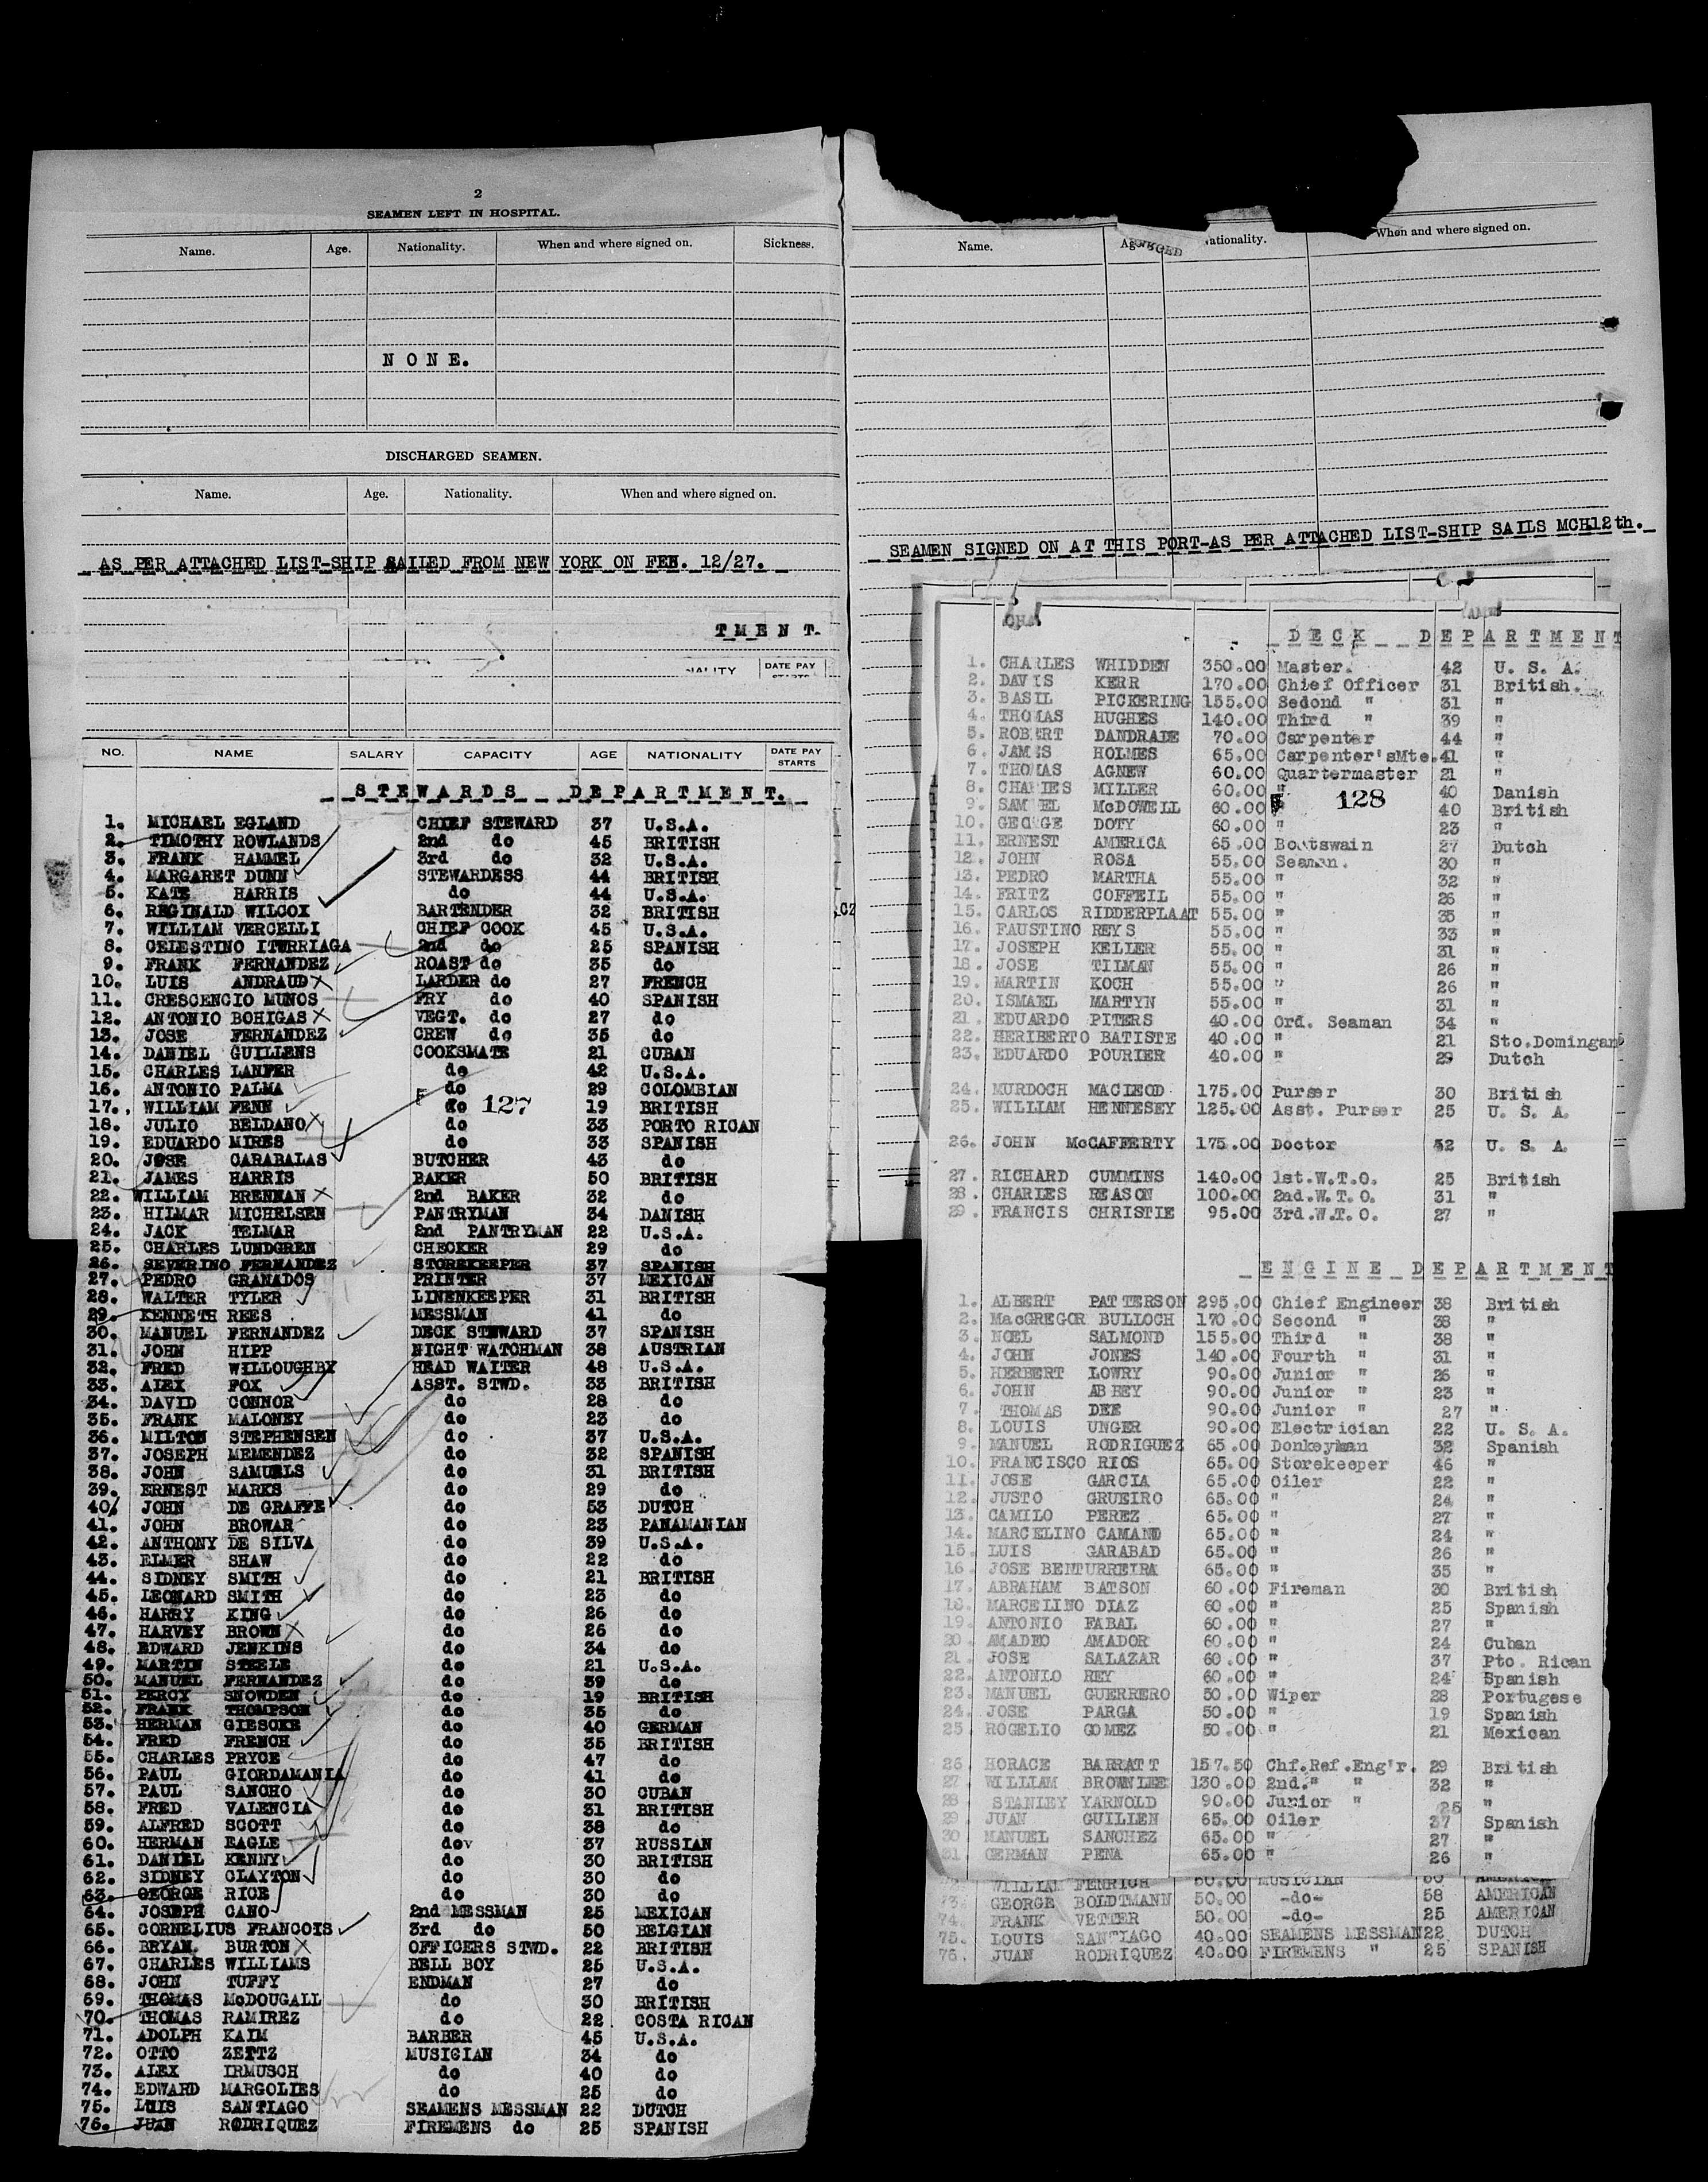 2
SEAMEN LEFT IN HOSPITAL.
Name. Age. Nationality. When and where signed on. Sickness.
N O N E.
DISCHARGED SEAMEN.
Name. Age. Nationality. When and where signed on.
AS PER ATTACHED LIST-SHIP SAILED FROM NEW YORK ON FEB. 12/27.
T M E N T.
DATE PAY
NO. NAME SALARY CAPACITY AGE NATIONALITY DATE PAY STARTS
S T E W A R D S D E P A R T M E N T.
1. MICHAEL EGLAND CHIEF STEWARD 37 U.S.A.
2. TIMOTHY ROWLANDS 2nd do 45 BRITISH
3. FRANK HAMMEL 3rd do 32 U.S.A.
4. MARGARET DUNN STEWARDESS 44 BRITISH
5. KATE HARRIS do 44 U.S.A.
6. REGINALD WILCOX BARTENDER 32 BRITISH
7. WILLIAM VERCELLI CHIEF COOK 45 U.S.A.
8. CELESTINO ITURRIAGA 2nd do 25 SPANISH
9. FRANK FERNANDEZ ROAST do 35 do
10. LUIS ANDRAUD LARDER do 27 FRENCH
11. CRESCENCIO MUNOS FRY do 40 SPANISH
12. ANTONIO BOHIGAS VEGT. do 27 do
13. JOSE FERNANDEZ CREW do 35 do
14. DANIEL GUILLENS COOKSMATE 21 CUBAN
15. CHARLES LANFER do 42 U.S.A.
16. ANTONIO PALMA do 29 COLOMBIAN
17. WILLIAM FENN do 127 19 BRITISH
18. JULIO BELDANO do 33 PORTO RICAN
19. EDUARDO MIRES do 33 SPANISH
20. JOSE CARABALAS BUTCHER 43 do
21. JAMES HARRIS BAKER 50 BRITISH
22. WILLIAM BRENNAN 2nd BAKER 32 do
23. HILMAR MICHELSEN PANTRYMAN 34 DANISH
24. JACK TELMAR 2nd PANTRYMAN 22 U.S.A.
25. CHARLES LUNDGREN CHECKER 29 do
26. SEVERINO FERNANDEZ STOREKEEPER 37 SPANISH
27. PEDRO GRANADOS PRINTER 37 MEXICAN
28. WALTER TYLER LINENKEEPER 31 BRITISH
29. KENNETH REES MESSMAN 41 do
30. MANUEL FERNANDEZ DECK STEWARD 37 SPANISH
31. JOHN HIPP NIGHT WATCHMAN 38 AUSTRIAN
32. FRED WILLOUGHBY HEAD WAITER 48 U.S.A.
33. ALEX FOX ASST. STWD. 33 BRITISH
34. DAVID CONNOR do 28 do
35. FRANK MALONEY do 23 do
36. MILTON STEPHENSEN do 37 U.S.A.
37. JOSEPH MEMENDEZ do 32 SPANISH
38. JOHN SAMUELS do 31 BRITISH
39. ERNEST MARKS do 29 do
40. JOHN DE GRAFFE do 53 DUTCH
41. JOHN BROWAR do 23 PANAMANIAN
42. ANTHONY DE SILVA do 39 U.S.A.
43. ELMER SHAW do 22 do
44. SIDNEY SMITH do 21 BRITISH
45. LEONARD SMITH do 23 do
46. HARRY KING do 26 do
47. HARVEY BROWN do 26 do
48. EDWARD JENKINS do 34 do
49. MARTIN STEELE do 21 U.S.A.
50. MANUEL FERNANDEZ do 39 do
51. PERCY SNOWDEN do 19 BRITISH
52. FRANK THOMPSON do 35 do
53. HERMAN GIESCKE do 40 GERMAN
54. FRED FRENCH do 35 BRITISH
55. CHARLES PRYCE do 47 do
56. PAUL GIORDAMANIA do 41 do
57. PAUL SANCHO do 30 CUBAN
58. FRED VALENCIA do 31 BRITISH
59. ALFRED SCOTT do 38 do
60. HERMAN EAGLE do 37 RUSSIAN
61. DANIEL KENNY do 30 BRITISH
62. SIDNEY CLAYTON do 30 do
63. GEORGE RICE do 30 do
64. JOSEPH CANO 2nd MESSMAN 25 MEXICAN
65. CORNELIUS FRANCOIS 3rd do 50 BELGIAN
66. BRYAN. BURTON OFFICERS STWD. 22 BRITISH
67. CHARLES WILLIAMS BELL BOY 25 U.S.A.
68. JOHN TUFFY ENDMAN 27 do
69. THOMAS McDOUGALL do 30 BRITISH
70. THOMAS RAMIREZ do 22 COSTA RICAN
71. ADOLPH KAIM BARBER 45 U.S.A.
72. OTTO ZEITZ MUSICIAN 34 do
73. ALEX IRMUSCH do 40 do
74. EDWARD MARGOLIES do 25 do
75. LUIS SANTIAGO SEAMENS MESSMAN 22 DUTCH
76. JUAN RODRIQUEZ FIREMENS do 25 SPANISH
Name. Nationality. When and where signed on.
SEAMEN SIGNED ON AT THIS PORT-AS PER ATTACHED LIST-SHIP SAILS MCH12th.
D E C K D E P A R T M E N T
1. CHARLES WHIDDEN 350.00 Master. 42 U. S. A.
2. DAVIS KERR 170.00 Chief Officer 31 British.
3. BASIL PICKERING 155.00 Sedond " 31 "
4. THOMAS HUGHES 140.00 Third " 39 "
5. ROBERT DANDRADE 70.00 Carpenter 44 "
6. JAMES HOLMES 65.00 Carpenter'sMte. 41 "
7. THOMAS AGNEW 60.00 Quartermaster 21 "
8. CHARIES MILLER 60.00 " 40 Danish
9. SAMUEL McDOWELL 60.00 128 40 British
10. GEORGE DOTY 60.00 " 23 "
11. ERNEST AMERICA 65.00 Boatswain 27 Dutch
12. JOHN ROSA 55.00 Seaman. 30 "
13. PEDRO MARTHA 55.00 " 32 "
14. FRITZ COFFEIL 55.00 " 26 "
15. CARLOS RIDDERPLAAT 55.00 " 35 "
16. FAUSTINO REYS 55.00 " 33 "
17. JOSEPH KELLER 55.00 " 31 "
18. JOSE TILMAN 55.00 " 26 "
19. MARTIN KOCH 55.00 " 26 "
20. ISMAEL MARTYN 55.00 " 31 "
21. EDUARDO PITERS 40.00 Ord. Seaman 34 "
22. HERIBERTO BATISTE 40.00 " 21 Sto.Domingan
23. EDUARDO POURIER 40.00 " 29 Dutch
24. MURDOCH MACLEOD 175.00 Purser 30 British
25. WILLIAM HENNESEY 125.00 Asst. Purser 25 U. S. A.
26. JOHN McCAFFERTY 175.00 Doctor 52 U. S. A.
27. RICHARD CUMMINS 140.00 1st.W.T.O. 25 British
28. CHARLES REASON 100.00 2nd.W.T.O. 31 "
29. FRANCIS CHRISTIE 95.00 3rd.W.T.O. 27 "
E N G I N E D E P A R T M E N T
1. ALBERT PATTERSON 295.00 Chief Engineer 38 British
2. MacGREGOR BULLOCH 170.00 Second " 38 "
3. NOEL SALMOND 155.00 Third " 38 "
4. JOHN JONES 140.00 Fourth " 31 "
5. HERBERT LOWRY 90.00 Junior " 26 "
6. JOHN ABBEY 90.00 Junior " 23 "
7. THOMAS DEE 90.00 Junior " 27 "
8. LOUIS UNGER 90.00 Electrician 22 U. S. A.
9. MANUEL RODRIGUEZ 65.00 Donkeyman 32 Spanish
10. FRANCISCO RIOS 65.00 Storekeeper 46 "
11. JOSE GARCIA 65.00 Oiler 22 "
12. JUSTO GRUEIRO 65.00 " 24 "
13. CAMILO PEREZ 65.00 " 27 "
14. MARCELINO CAMAND 65.00 " 24 "
15. LUIS GARABAD 65.00 " 26 "
16. JOSE BENTURREIRA 65.00 " 35 "
17. ABRAHAM BATSON 60.00 Fireman 30 British
18. MARCELINO DIAZ 60.00 " 25 Spanish
19. ANTONIO FABAL 60.00 " 27 "
20. AMADEO AMADOR 60.00 " 24 Cuban
21. JOSE SALAZAR 60.00 " 37 Pto. Rican
22. ANTONIO REY 60.00 " 24 Spanish
23. MANUEL GUERRERO 50.00 Wiper 28 Portugese
24. JOSE PARGA 50.00 " 19 Spanish
25. ROGELIO GOMEZ 50.00 " 21 Mexican
26 HORACE BARRATT 157.50 Chf.Ref.Eng'r. 29 British
27. WILLIAM BROWNLEE 130.00 2nd." " 32 "
28 STANLEY YARNOLD 90.00 Junior " 25 "
29. JUAN GUILLEN 65.00 Oiler 37 Spanish
30. MANUEL SANCHEZ 65.00 " 27 "
31. GERMAN PENA 65.00 " 26 "
WILLIAM FENRICH 50.00 MUSICIAN AMERICAN
73. GEORGE BOLDTMANN 50.00 -do- 58 AMERICAN
74. FRANK VETTER 50.00 -do- 25 AMERICAN
75. LOUIS SANTIAGO 40.00 SEAMENS MESSMAN 22 DUTCH
76. JUAN RODRIQUEZ 40.00 FIREMENS " 25 SPANISH